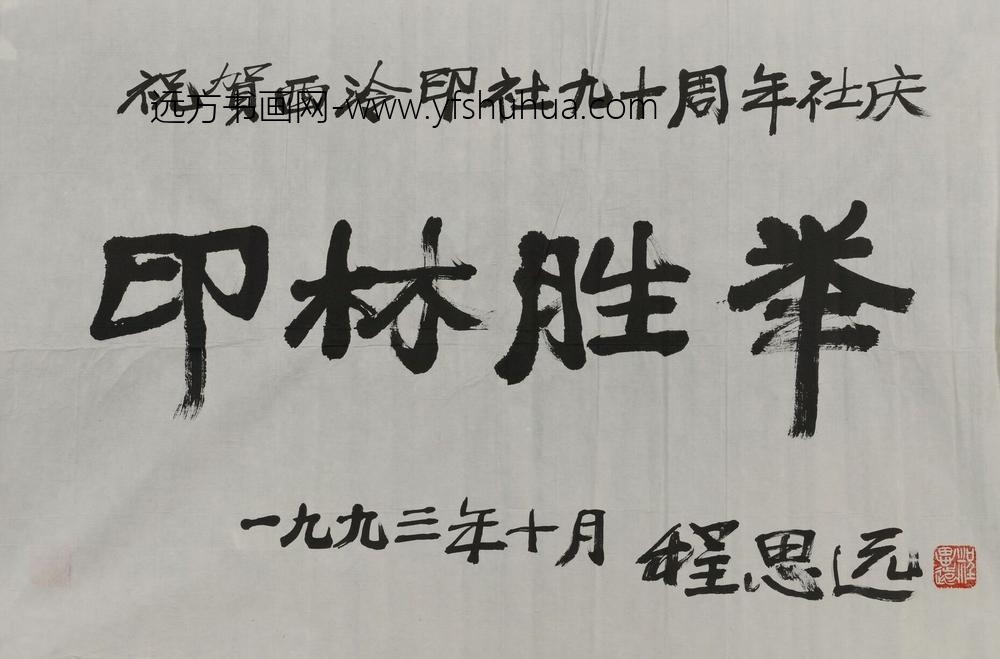 祝贺西泠印社九十周年社庆
远方书画网-www.yfshuhua.com
印林胜举
一九九三年十月 程思远